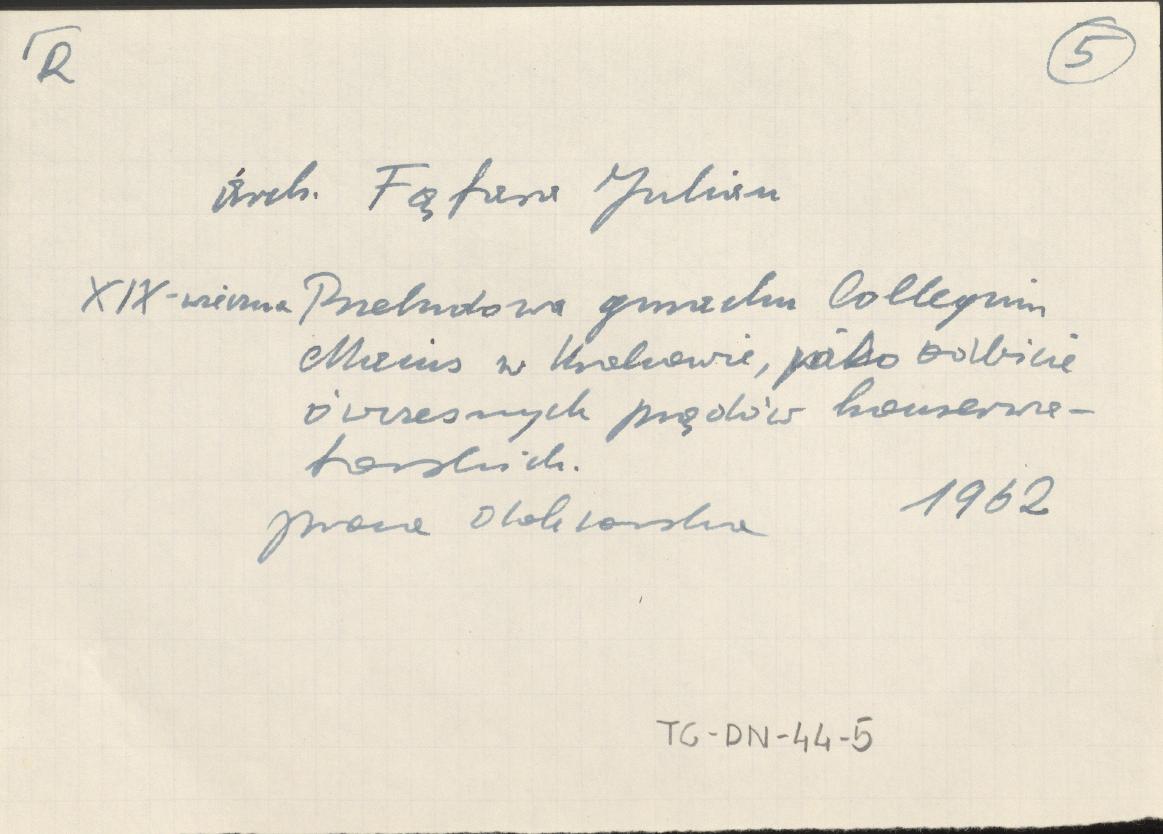 R
5
arch. Fąfara Julian
XIX-wieczna Przebudowa gmachu Collegium
Maius w Krakowie, jako odbicie
ówczesnych prądów konserwa-
torskich.
praca doktorska 1962
TG-DN-44-5